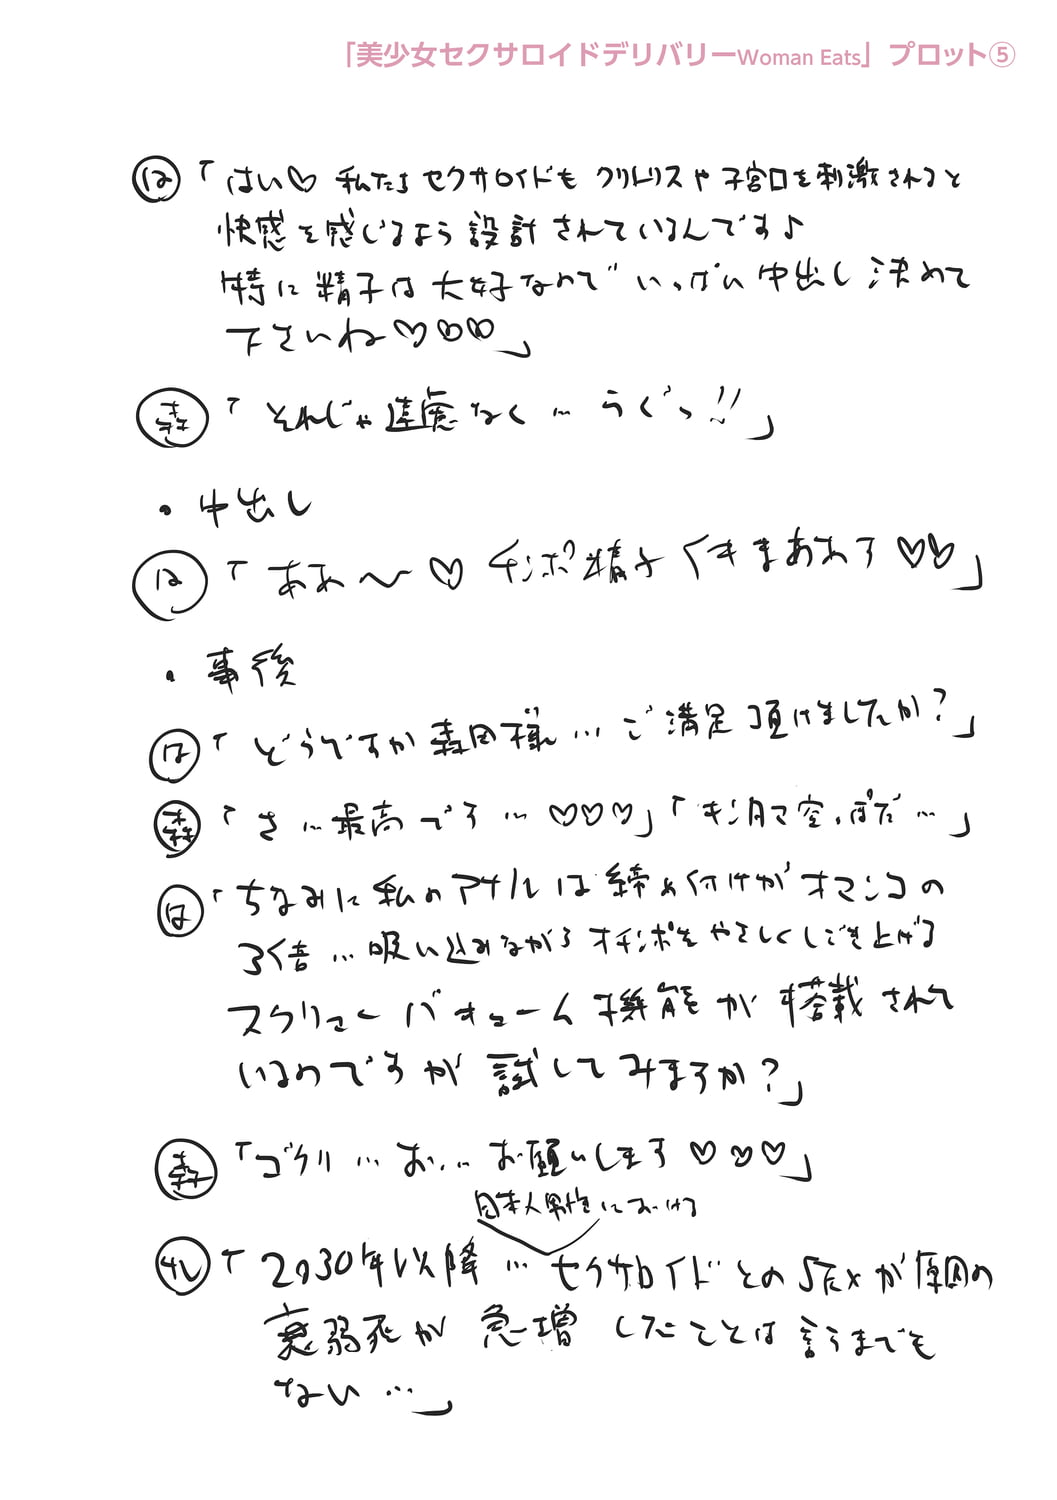 「美少女セクサロイドデリバリーWoman Eats」プロット⑤
は「はい♡ 私たちセクサロイドもクリトリスや子宮口を刺激されると
快感を感じるよう設計されているんです♪
特に精子は大好なのでいっぱい中出し決めて
下さいね♡♡♡」
森「それじゃ遠慮なく… うぐっ!!」
・中出し
は「ああ〜♡ チンポ精子くきまあわす♡♡」
・事後
は「どうですか森田様…ご満足頂けましたか?」
森「さ…最高です…♡♡♡」「キンタマ空っぽだ…」
は「ちなみに私のアナルは締め付けがオマンコの
3倍…吸い込みながらオチンポをやさしくしごき上げる
スクリューバキューム機能が搭載されて
いるのですが試してみますか?」
森「ゴクリ…お…お願いします♡♡♡」
日本人男性における
ナレ「2030年以降…セクサロイドとのSEXが原因の
衰弱死が急増したことは言うまでも
ない…」